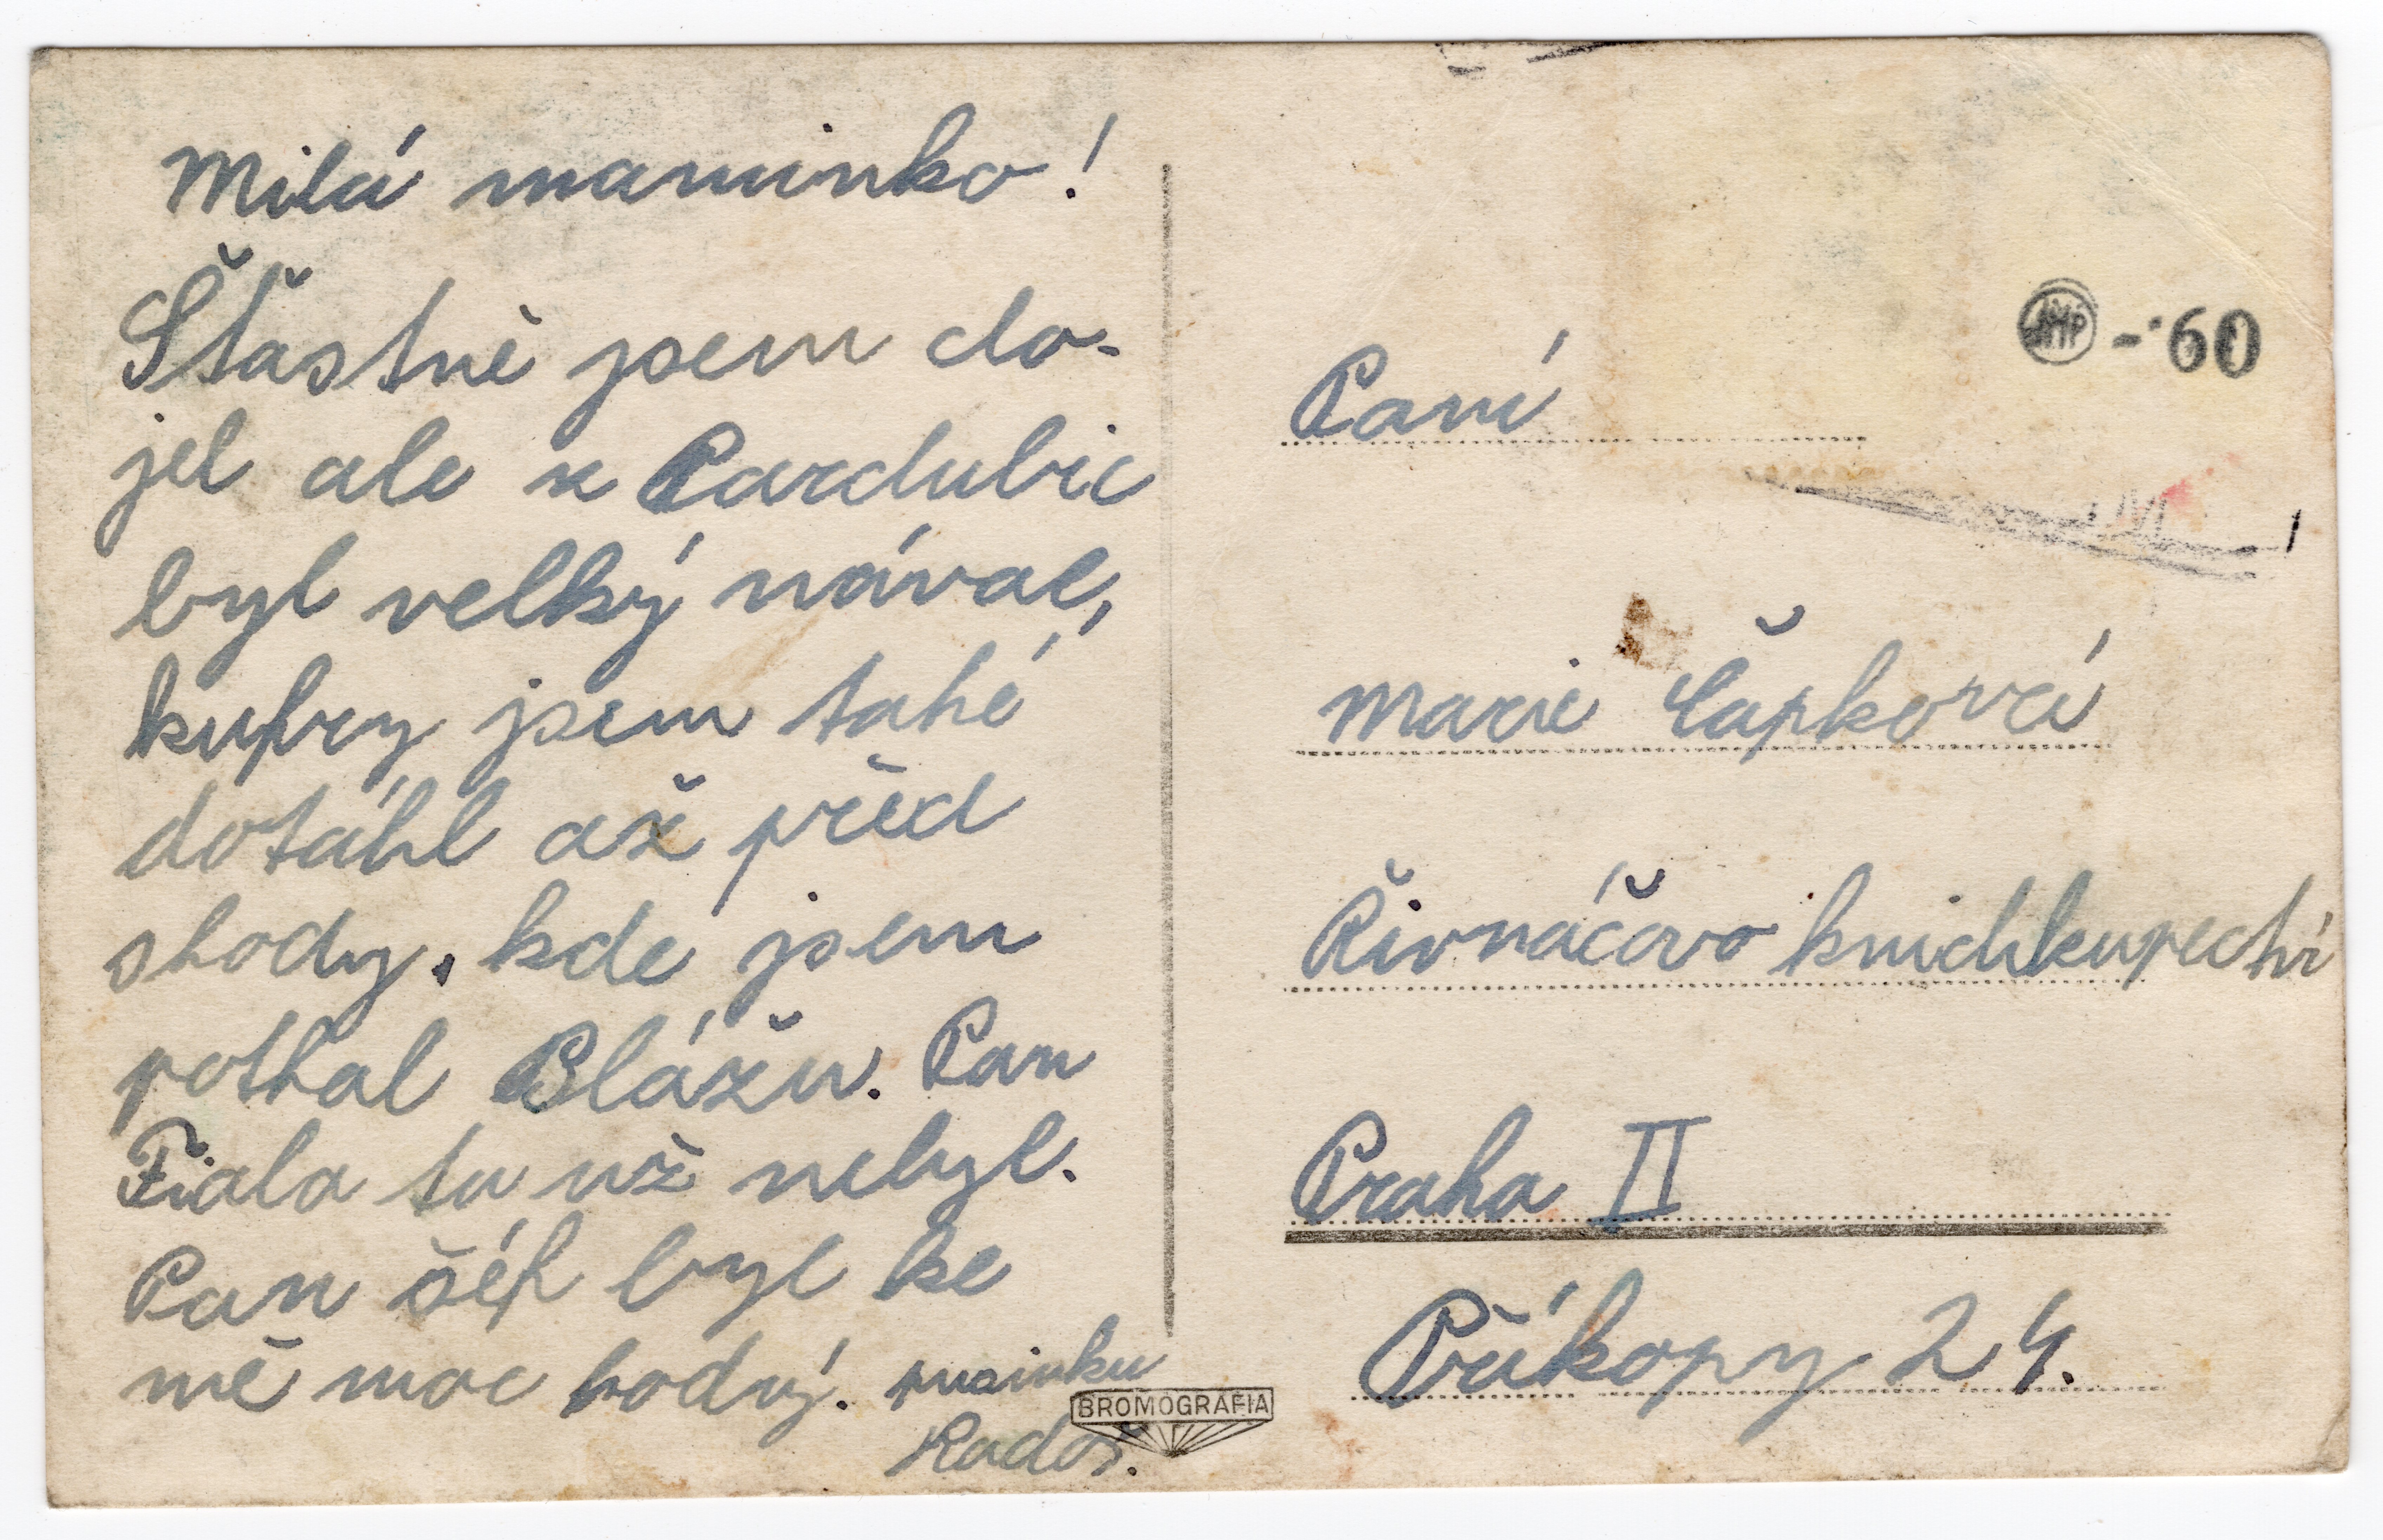 Milá maminko!
Šťastně jsem do-
jel ale z Pardubic
byl velký nával,
kufry jsem také
dotáhl až před
shody, kde jsem
pothal Blážu. Pan
Fiala tu už nebyl.
Pan šéf byl ke
mě moc hodný. pusinku
Radoš.
BROMOGRAFIA
-·60
Paní
Marie Čápková
Řivnáčovo knichkupectví
Praha II
Příkopy 24.